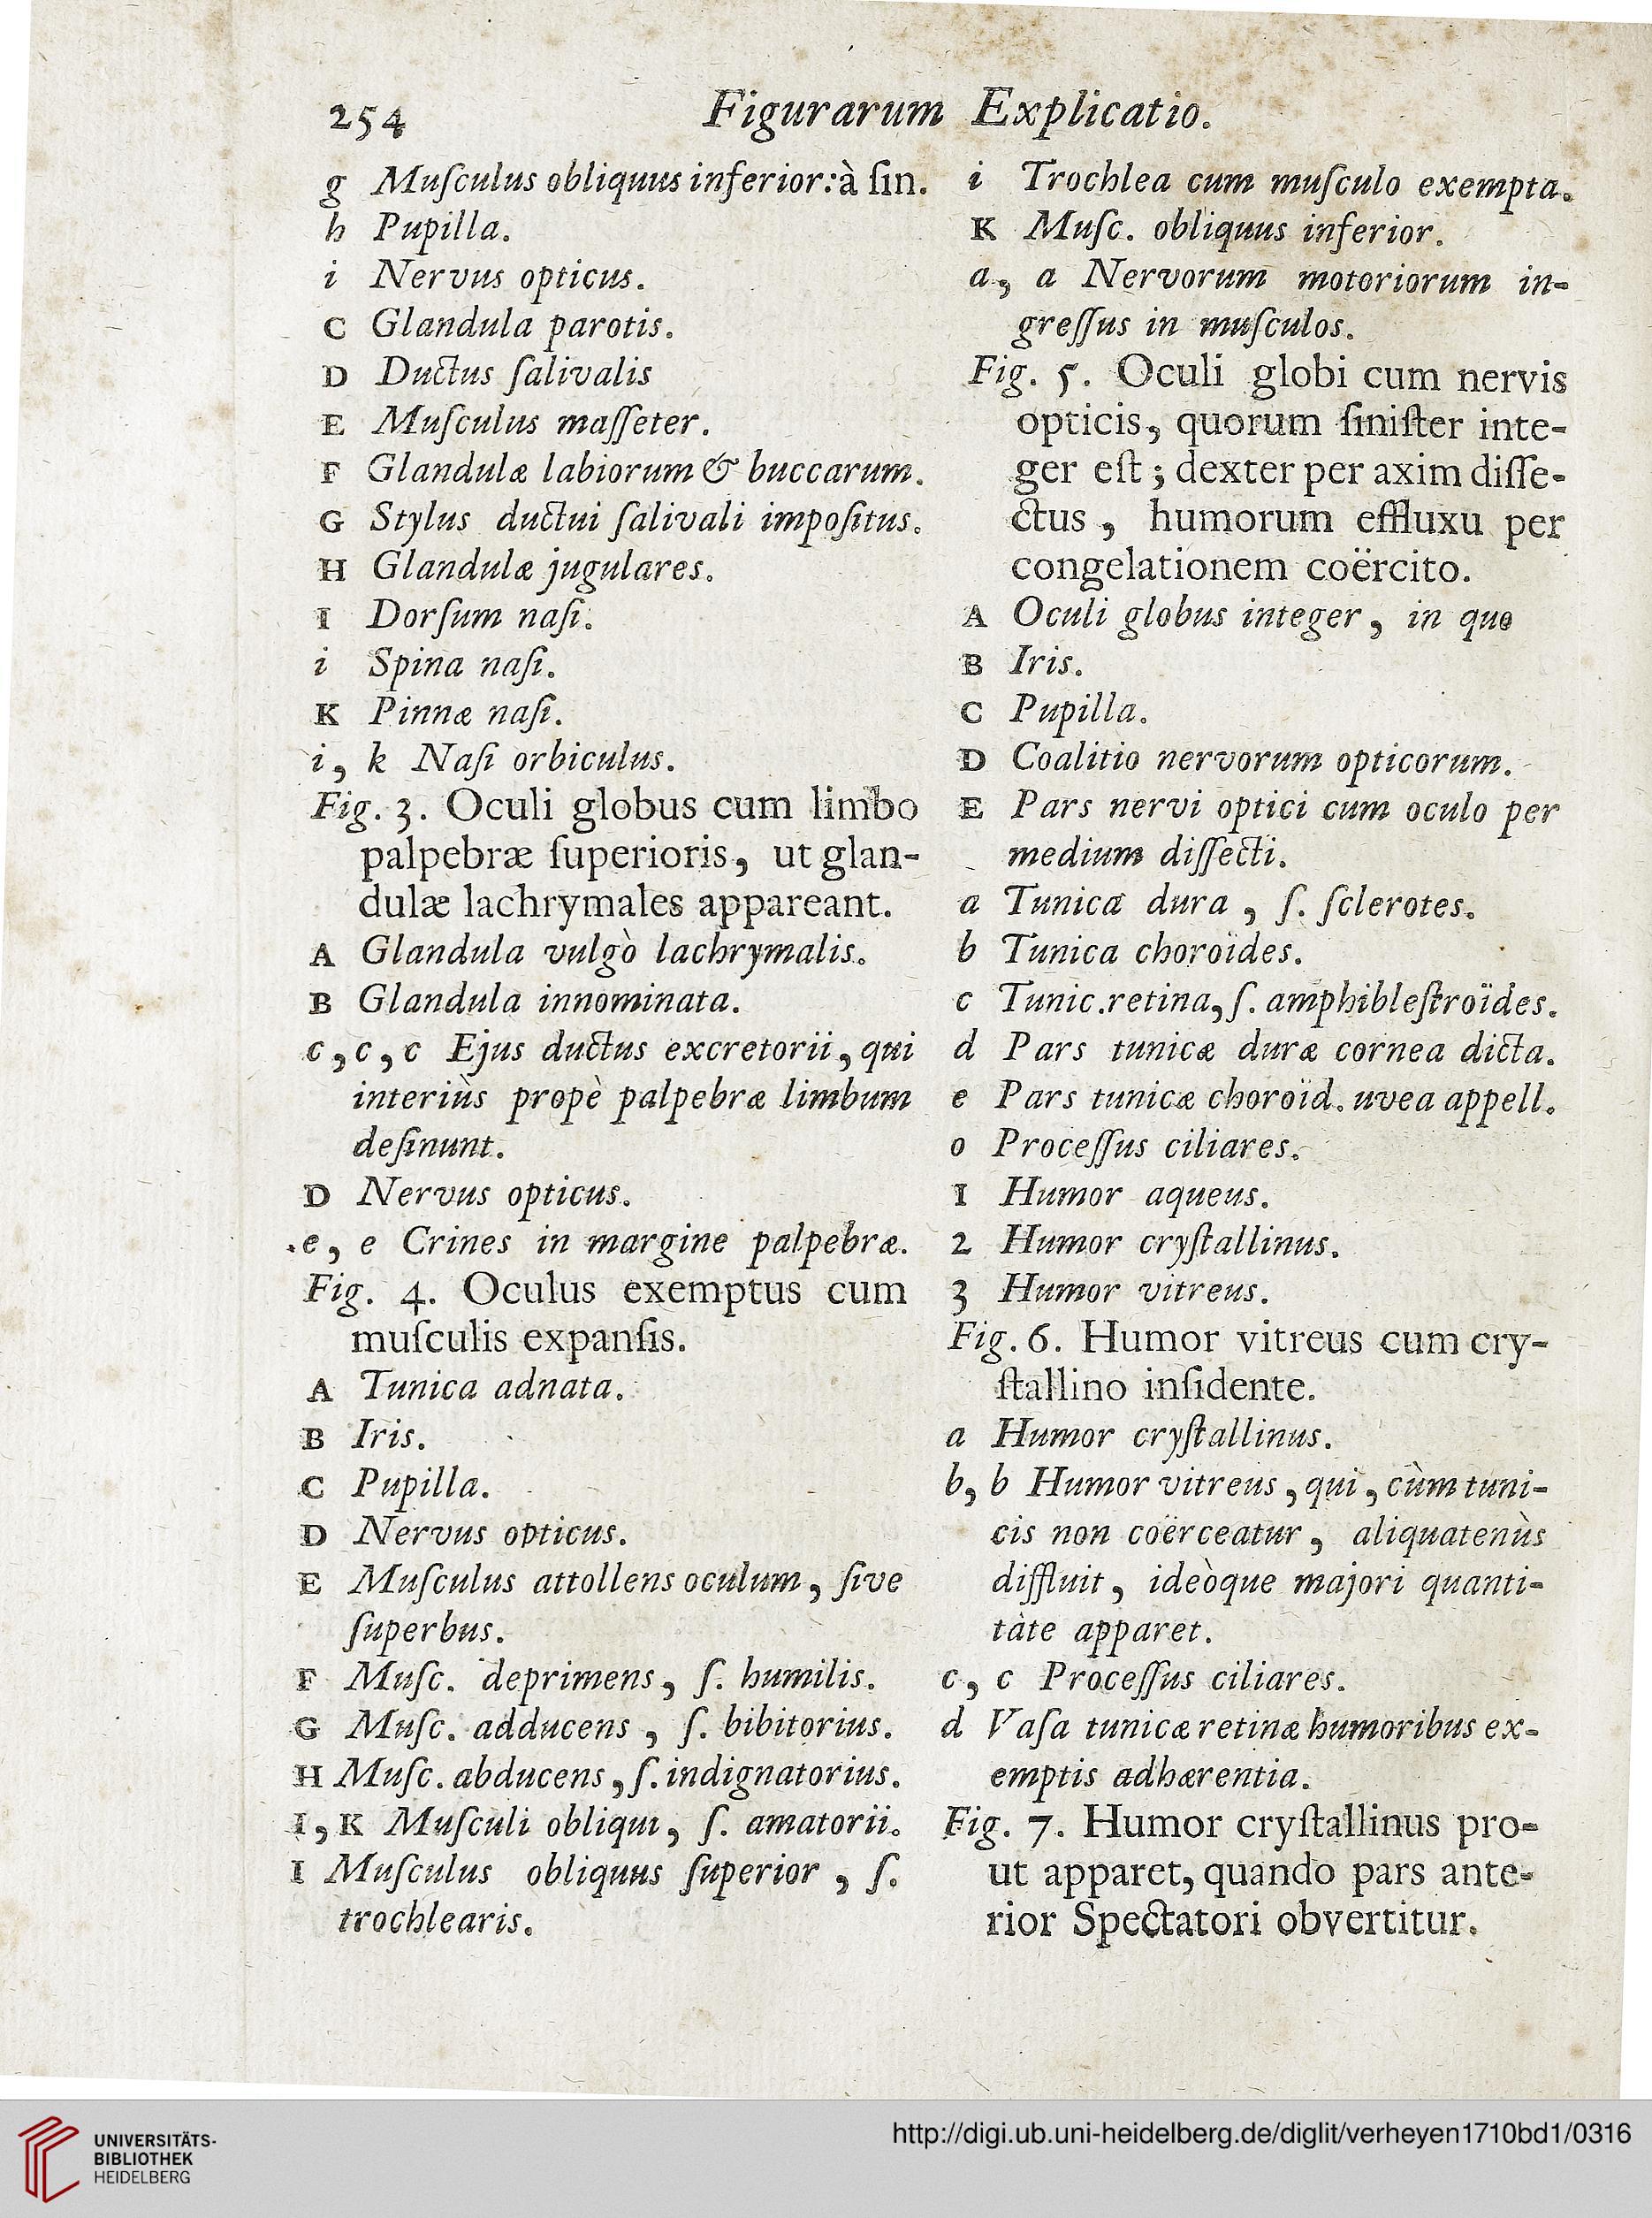 254 Figurarum Explicatio.
g Muſculus obliquus inferior: à ſin.
h Pupilla.
i Nervus opticus.
C Glandula parotis.
D Ductus ſalivalis
E Muſculus maſſeter.
F Glandulæ labiorum & buccarum.
G Stylus ductui ſalivali impoſitus.
H Glandulæ jugulares.
I Dorſum naſi.
i Spina naſi.
K Pinnæ naſi.
i, k Naſi orbiculus.
Fig. 3. Oculi globus cum limbo
palpebræ ſuperioris, ut glan-
dulæ lachrymales appareant.
A Glandula vulgò lachrymalis.
B Glandula innominata.
c, c, c Ejus ductus excretorii, qui
interiùs propè palpebræ limbum
deſinunt.
D Nervus opticus.
e, e Crines in margine palpebræ.
Fig. 4. Oculus exemptus cum
muſculis expanſis.
A Tunica adnata.
B Iris.
C Pupilla.
D Nervus opticus.
E Muſculus attollens oculum, ſive
ſuperbus.
F Muſc. deprimens, ſ. humilis.
G Muſc. adducens, ſ. bibitorius.
H Muſc. abducens, ſ. indignatorius.
I, K Muſculi obliqui, ſ. amatorii.
I Muſculus obliquus ſuperior, ſ.
trochlearis.
i Trochlea cum muſculo exempta.
K Muſc. obliquus inferior.
a, a Nervorum motoriorum in-
greſſus in muſculos.
Fig. 5. Oculi globi cum nervis
opticis, quorum ſiniſter inte-
ger eſt; dexter per axim diſſe-
ctus, humorum effluxu per
congelationem coërcito.
A Oculi globus integer, in quo
B Iris.
C Pupilla.
D Coalitio nervorum opticorum.
E Pars nervi optici cum oculo per
medium diſſecti.
a Tunica dura, ſ. ſclerotes.
b Tunica choroïdes.
c Tunic. retina, ſ. amphibleſtroïdes.
d Pars tunicæ duræ cornea dicta.
e Pars tunicæ choroïd. uvea appell.
o Proceſſus ciliares.
1 Humor aqueus.
2 Humor cryſtallinus.
3 Humor vitreus.
Fig. 6. Humor vitreus cum cry-
ſtallino inſidente.
a Humor cryſtallinus.
b, b Humor vitreus, qui, cùm tuni-
cis non coërceatur, aliquatenùs
diffluit, ideòque majori quanti-
tàte apparet.
c, c Proceſſus ciliares.
d Vaſa tunicæ retinæ humoribus ex-
emptis adhærentia.
Fig. 7. Humor cryſtallinus pro-
ut apparet, quando pars ante-
rior Spectatori obvertitur.
UNIVERSITÄTS-
BIBLIOTHEK
HEIDELBERG
http://digi.ub.uni-heidelberg.de/diglit/verheyen1710bd1/0316